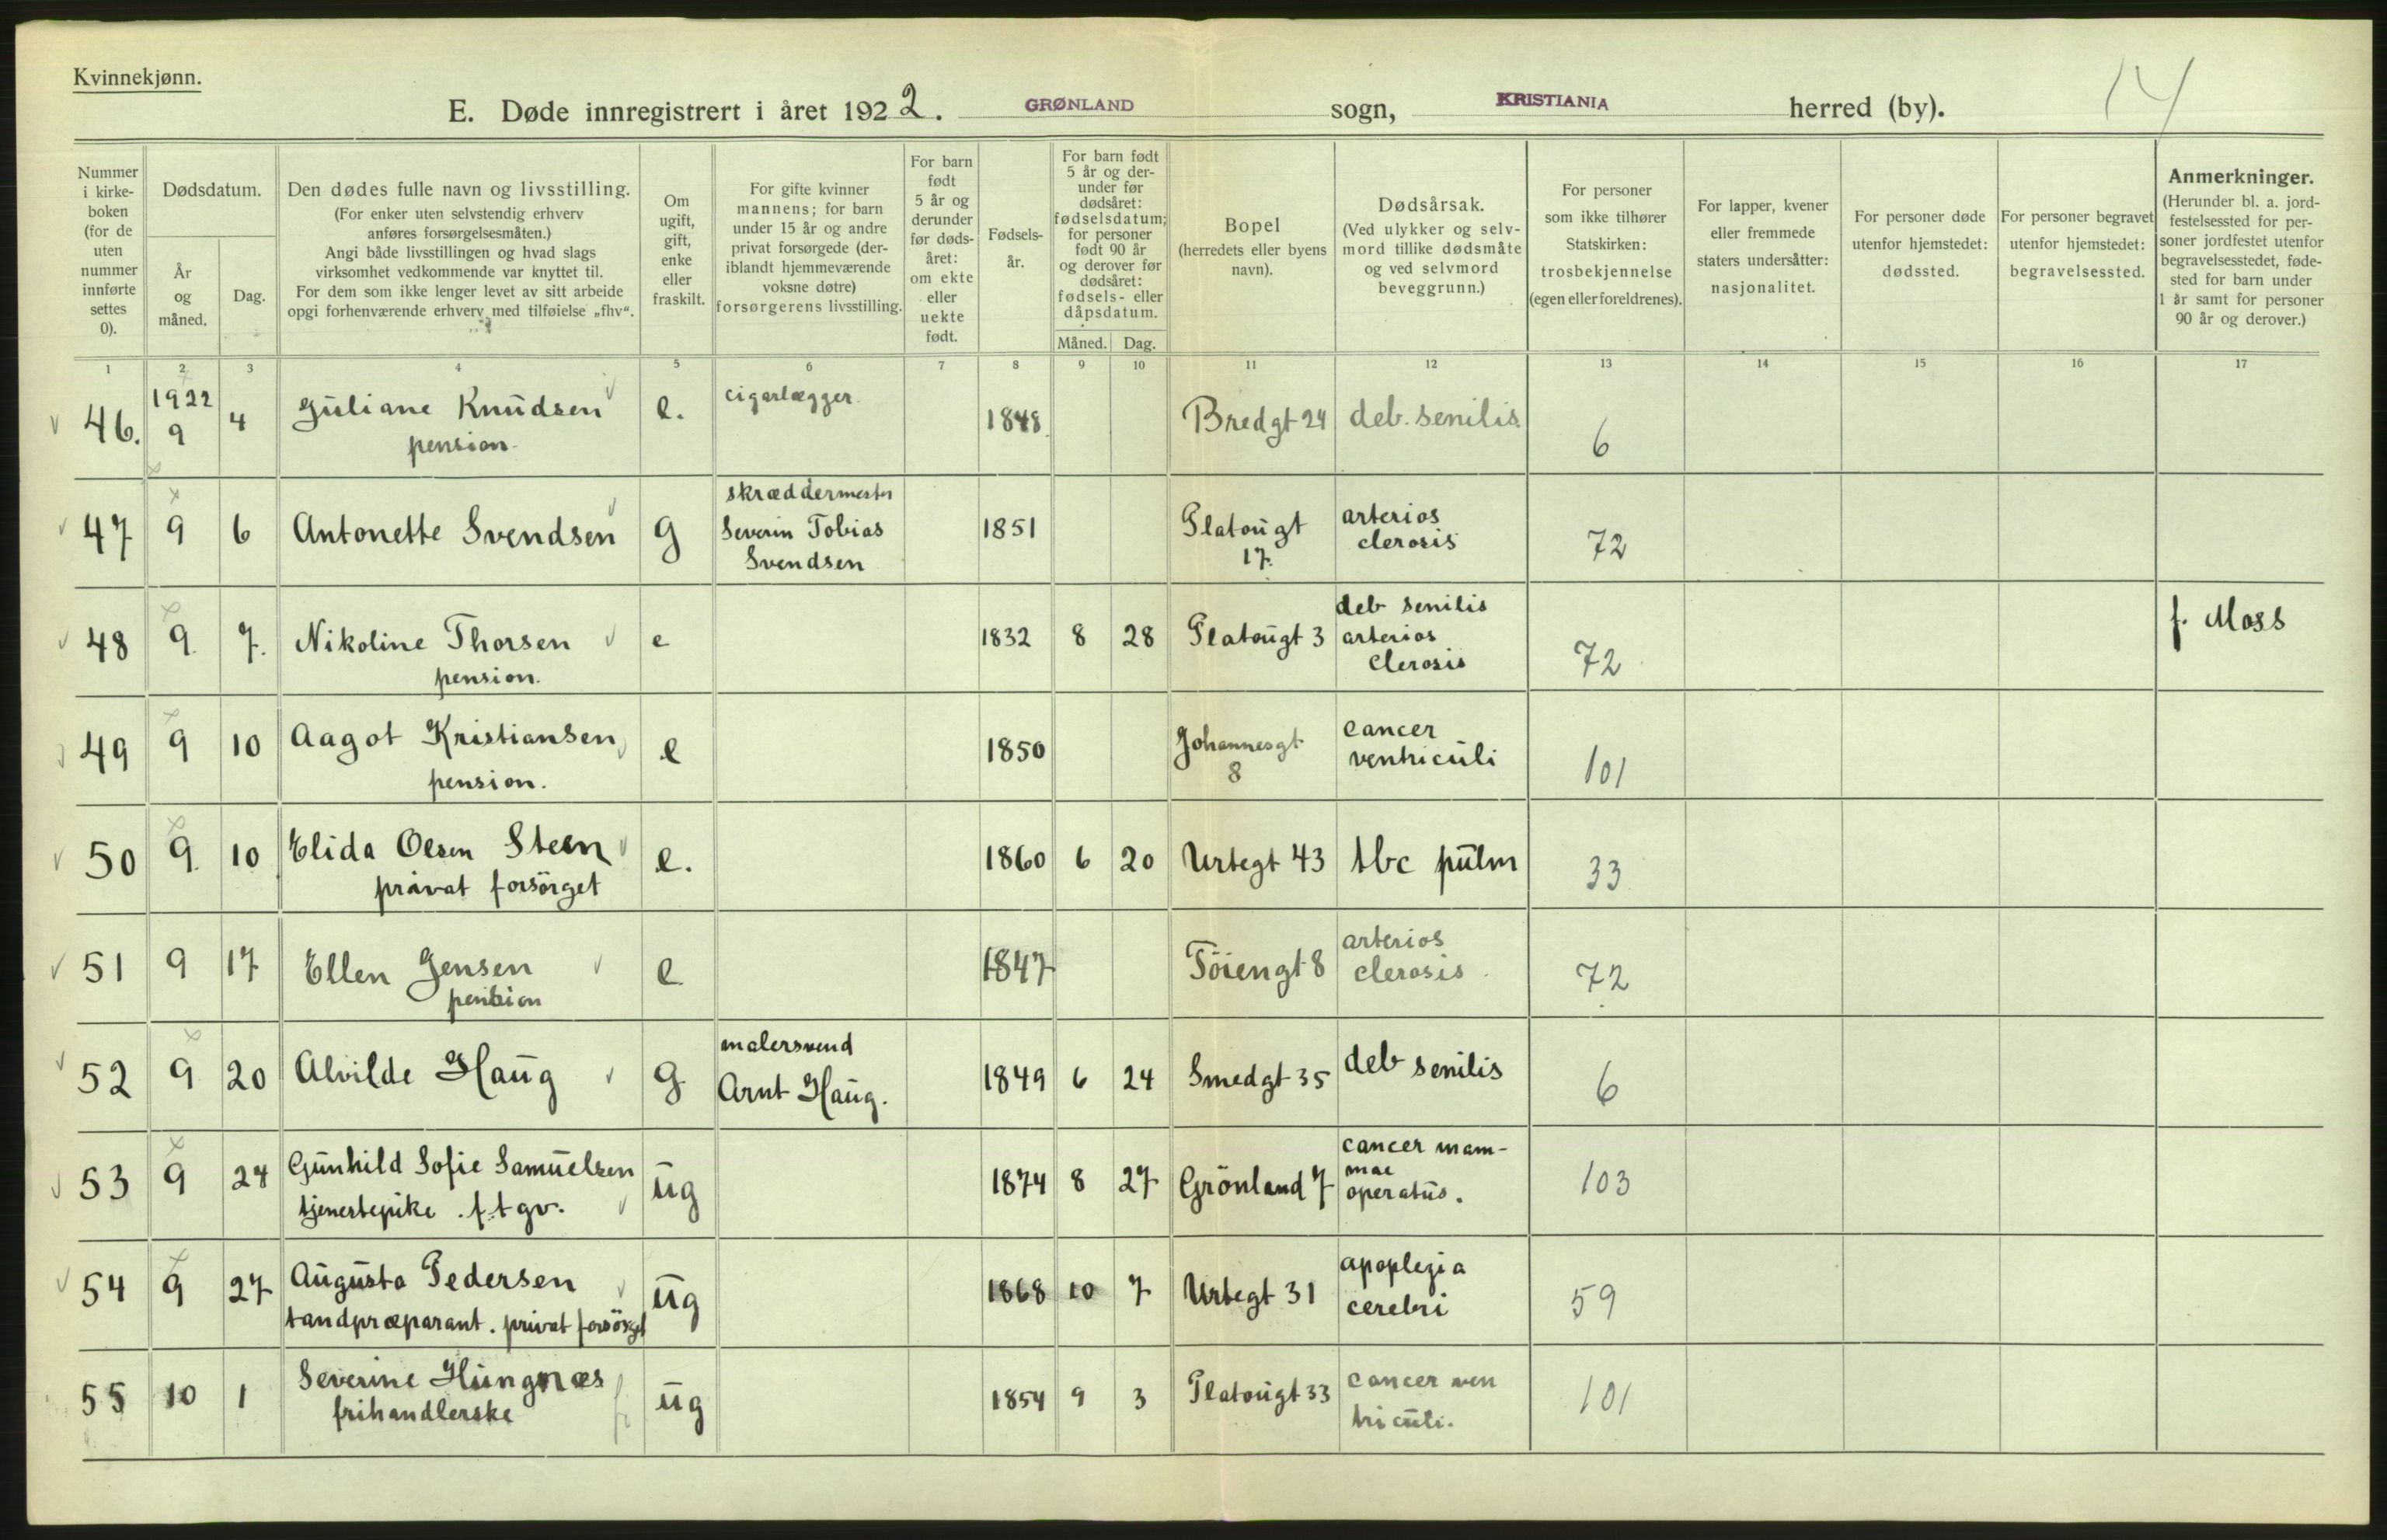 Kvinnekjønn.
E. Døde innregistrert i året 1922. GRØNLAND sogn, KRISTIANIA herred (by). 14
Nummer i kirke-boken (for de uten nummer innførte settes 0).
Dødsdatum.
År og måned.
Dag.
Den dødes fulle navn og livsstilling.
(For enker uten selvstendig erhverv anføres forsørgelsesmåten.)
Angi både livsstillingen og hvad slags virksomhet vedkommende var knyttet til.
For dem som ikke lenger levet av sitt arbeide opgi forhenværende erhverv med tilføielse „fhv“.
Om ugift, gift, enke eller fraskilt.
For gifte kvinner mannens; for barn under 15 år og andre privat forsørgede (deriblandt hjemmeværende voksne døtre) forsørgerens livsstilling.
For barn født 5 år og derunder før dødsåret: om ekte eller uekte født.
Fødsels-år.
For barn født 5 år og der-under før dødsåret: fødselsdatum; for personer født 90 år og derover før dødsåret: fødsels- eller dåpsdatum.
Måned. Dag.
Bopel (herredets eller byens navn).
Dødsårsak.
(Ved ulykker og selv-mord tillike dødsmåte og ved selvmord beveggrunn.)
For personer som ikke tilhører Statskirken: trosbekjennelse (egen eller foreldrenes).
For lapper, kvener eller fremmede staters undersåtter: nasjonalitet.
For personer døde utenfor hjemstedet: dødssted.
For personer begravet utenfor hjemstedet: begravelsessted.
Anmerkninger.
(Herunder bl. a. jord-festelsessted for per-soner jordfestet utenfor begravelsesstedet, føde-sted for barn under 1 år samt for personer 90 år og derover.)
1 2 3 4 5 6 7 8 9 10 11 12 13 14 15 16 17
46. 1922 9 4 Juliane Knudsen pension e. cigarlægger 1848. Bredgt 24 deb. senilis 6
47 9 6 Antonette Svendsen g skræddermester Severin Tobias Svendsen 1851 Platougt 17. arterios clerosis 72
48 9. 7. Nikoline Thorsen pension. e 1832 8 28 Platougt 3 deb senilis arterios clerosis 72 f. Moss
49 9 10 Aagot Kristiansen pension. e 1850 Johannesgt 8 cancer ventriculi 101
50 9. 10 Elida Olsen Steen privat forsörget e. 1860 6 20 Urtegt 43 tbc pulm 33
51 9 17 Ellen Jensen pension e 1847 Töiengt 8 arterios clerosis 72
52 9 20 Alvilde Haug g malersvend Arnt Haug. 1849 6 24 Smedgt 35 deb senilis 6
53 9 24 Gunhild Sofie Samuelsen tjenestepike . f.t gv. ug 1874 8 27 Grönland 7 cancer mam-mae operatus. 103
54 9 27 Augusta Pedersen tandpræparant. privat forsörget ug 1868 10 7 Urtegt 31 apoplexia cerebri 59
55 10 1 Severine Hungnæs frihandlerske ug 1854 9 3 Platougt 33 cancer ven triculi. 101